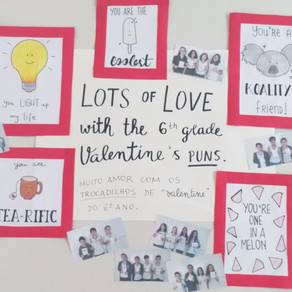 YOU ARE THE
coolest
you LIGHT up
my life
YOU'RE A
KOALITY
friend!
LOTS OF LOVE
with the 6th grade
Valentine's PUNS.
MUITO AMOR COM OS
TROCADILHOS DE "valentine"
DO 6º ANO.
you are
TEA-RIFIC
YOU'RE
ONE
IN A
MELON